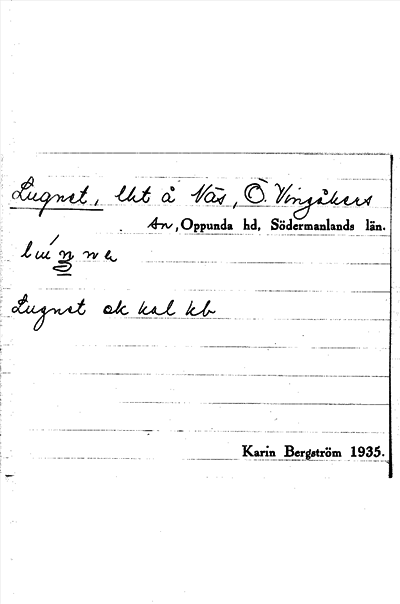 Lugnet, lht å Näs, Ö. Vingåkers
sn, Oppunda hd, Södermanlands län.
Lugnet ek kal kb
Karin Bergström 1935.